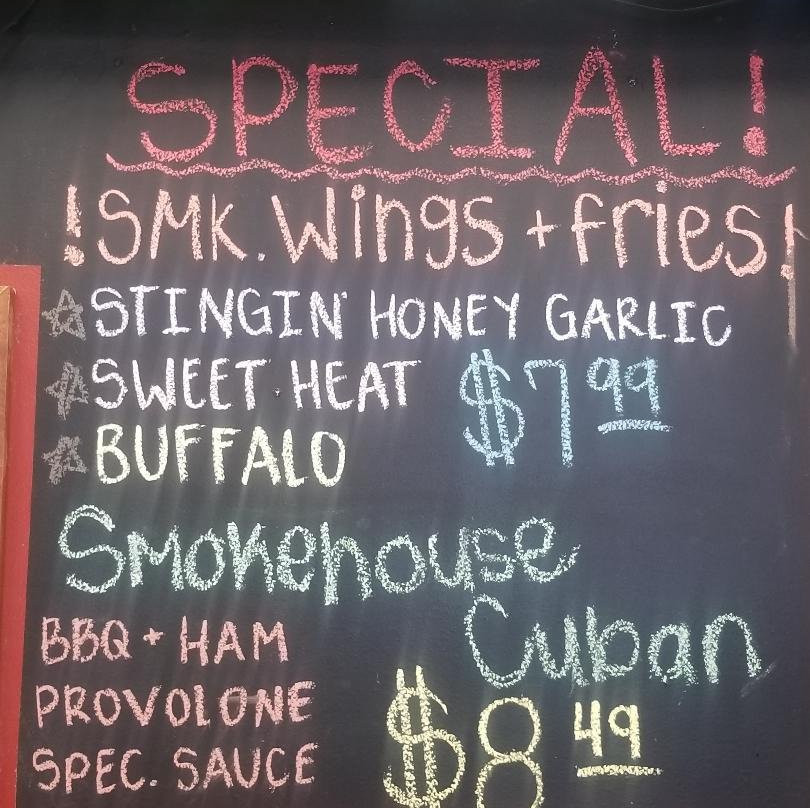 SPECIAL!
!SMK. Wings + fries!
STINGIN' HONEY GARLIC
SWEET HEAT $7.99
BUFFALO
Smokehouse
Cuban
BBQ + HAM
PROVOLONE
SPEC. SAUCE $8 49